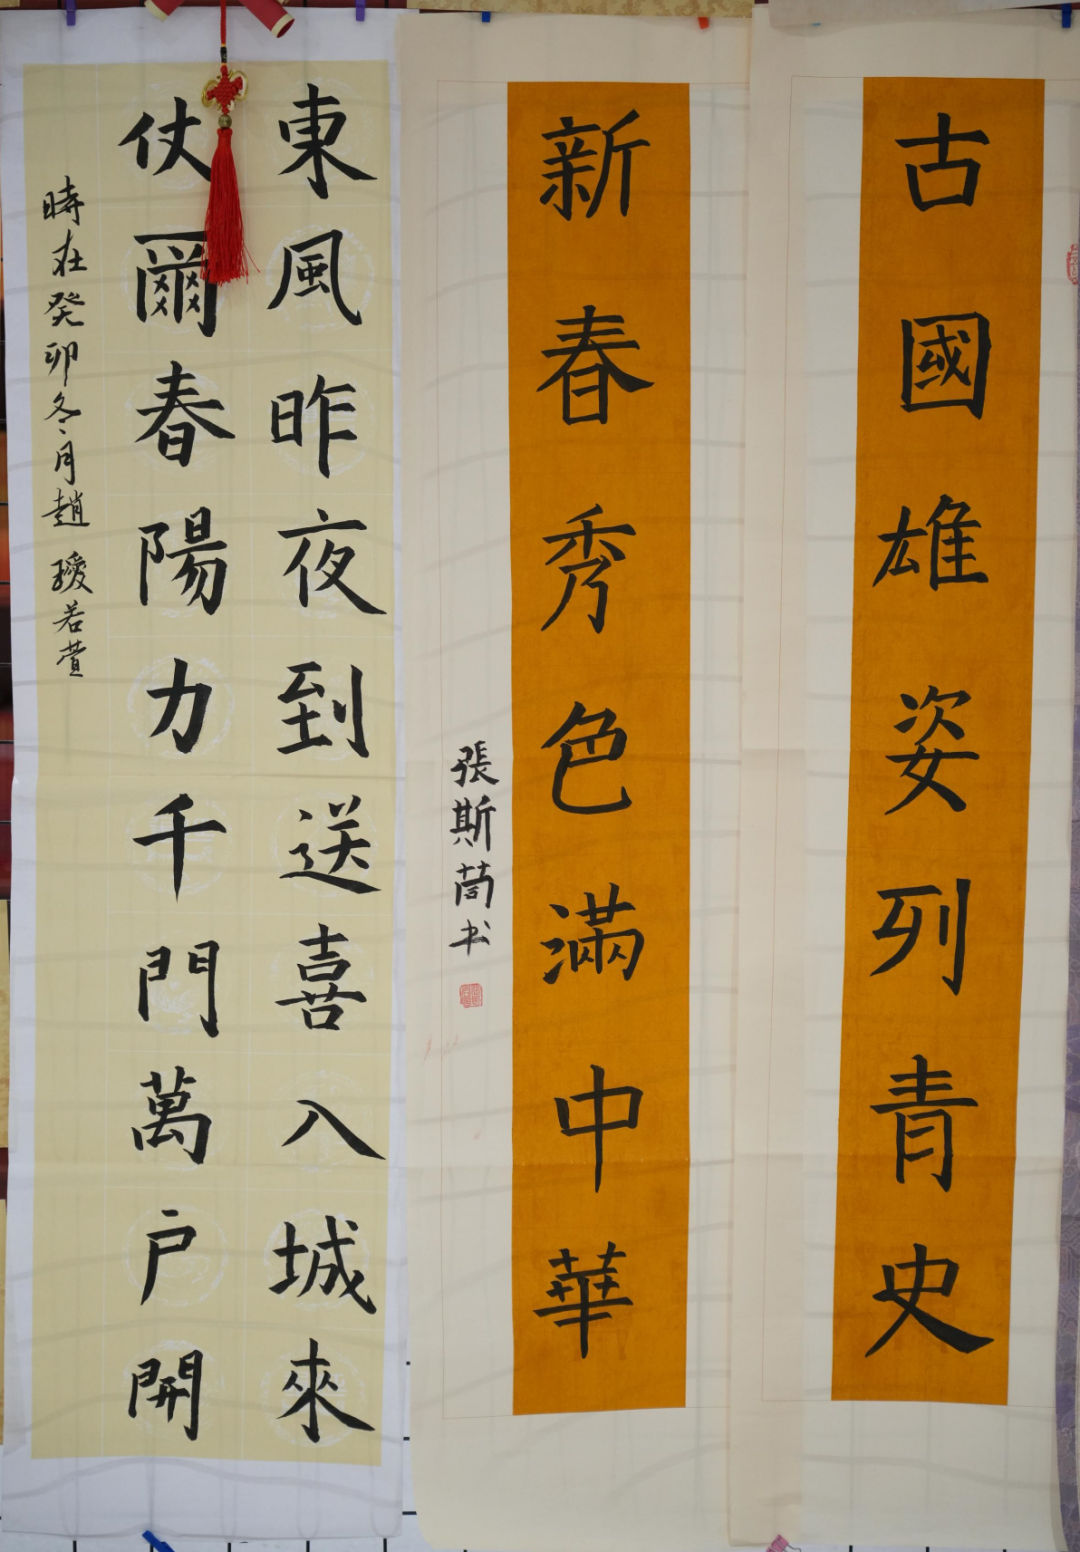 古國雄姿列青史
新春秀色滿中華
張斯茼书
東風昨夜到送喜入城來
仗爾春陽力千門萬户開
時在癸卯冬月趙瑷若萱